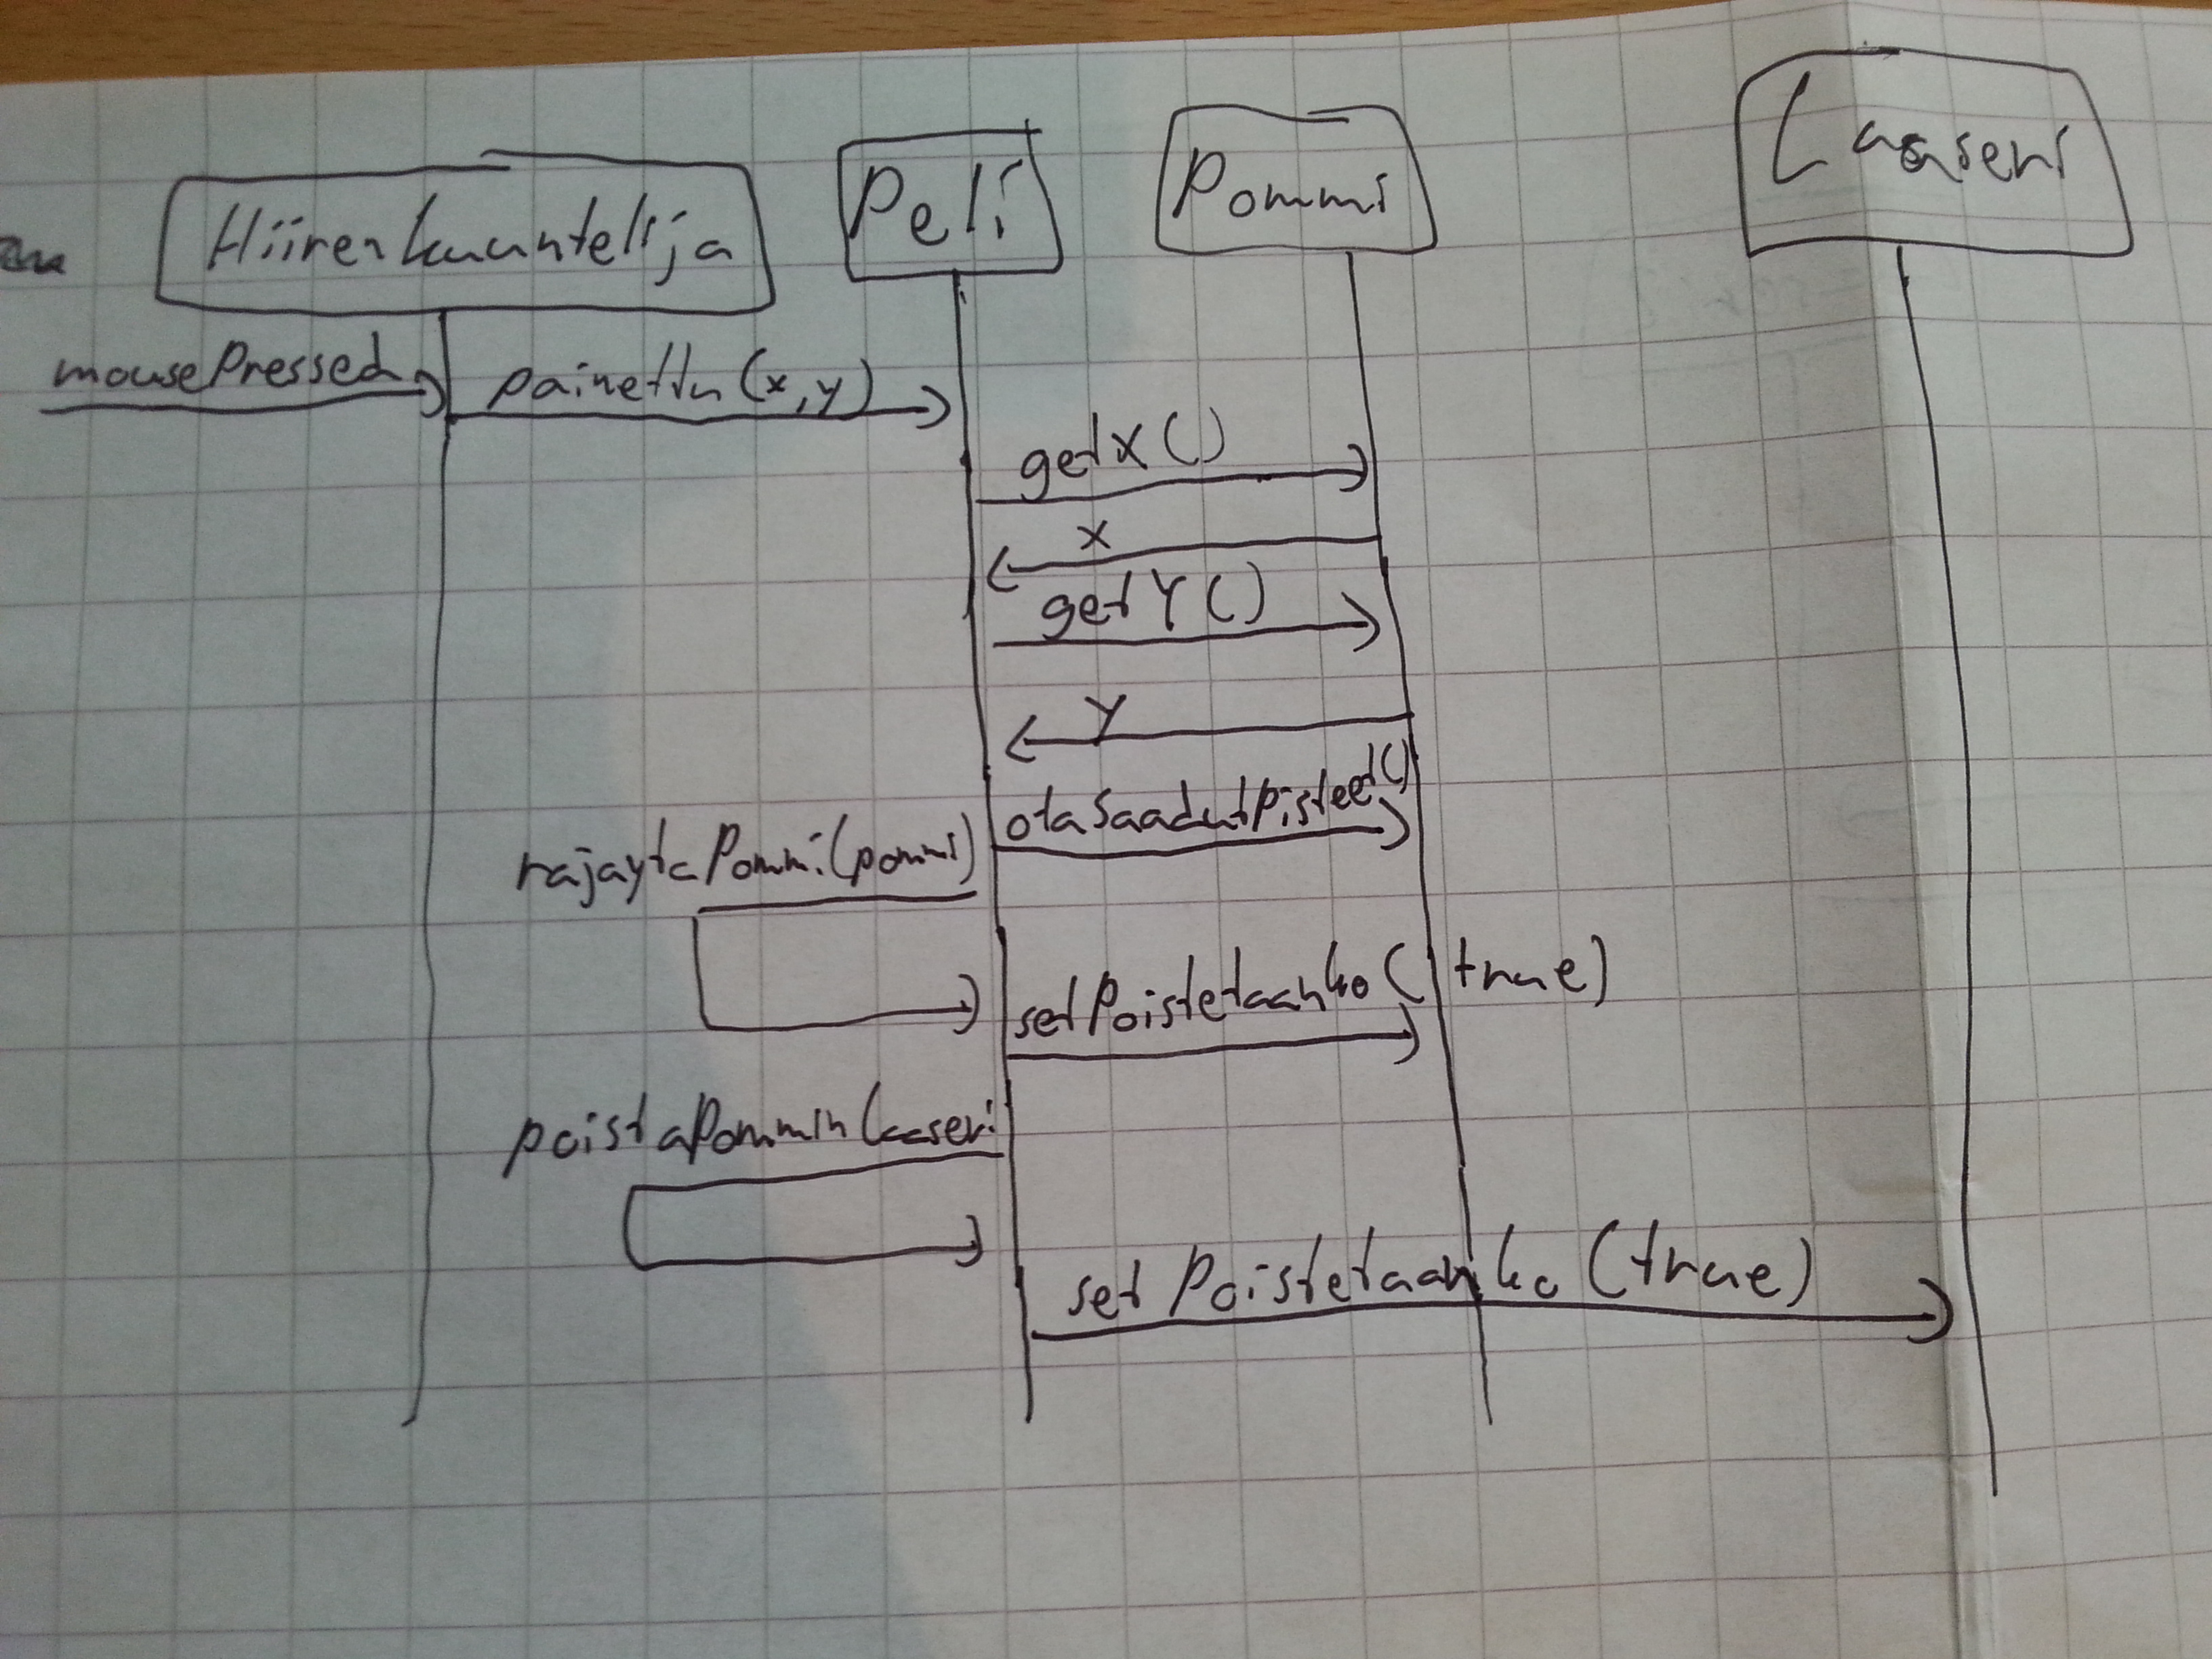 Hiirenkuuntelija Peli Pommi Laaseri
mousePressed painettu(x,y)
getX()
x
getY()
y
otaSaadutPisteet()
rajaytaPommi(pommi)
setPoistetaanko(true)
poistaPomminLaaseri
setPoistetaanko(true)